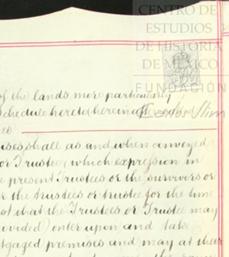 CENTRO DE
ESTUDIOS
DE HISTORIA
DE MÉXICO
FUNDACIÓN
of the lands more particularly
schedule hereto hereinafter
ises shall as and when conveyed
or Trustee, which expression in
e present Trustees or the survivors or
r the trustees or trustee for the time
that the Trustees or Trustee may
divided) enter upon and take
tgaged premises and may at their